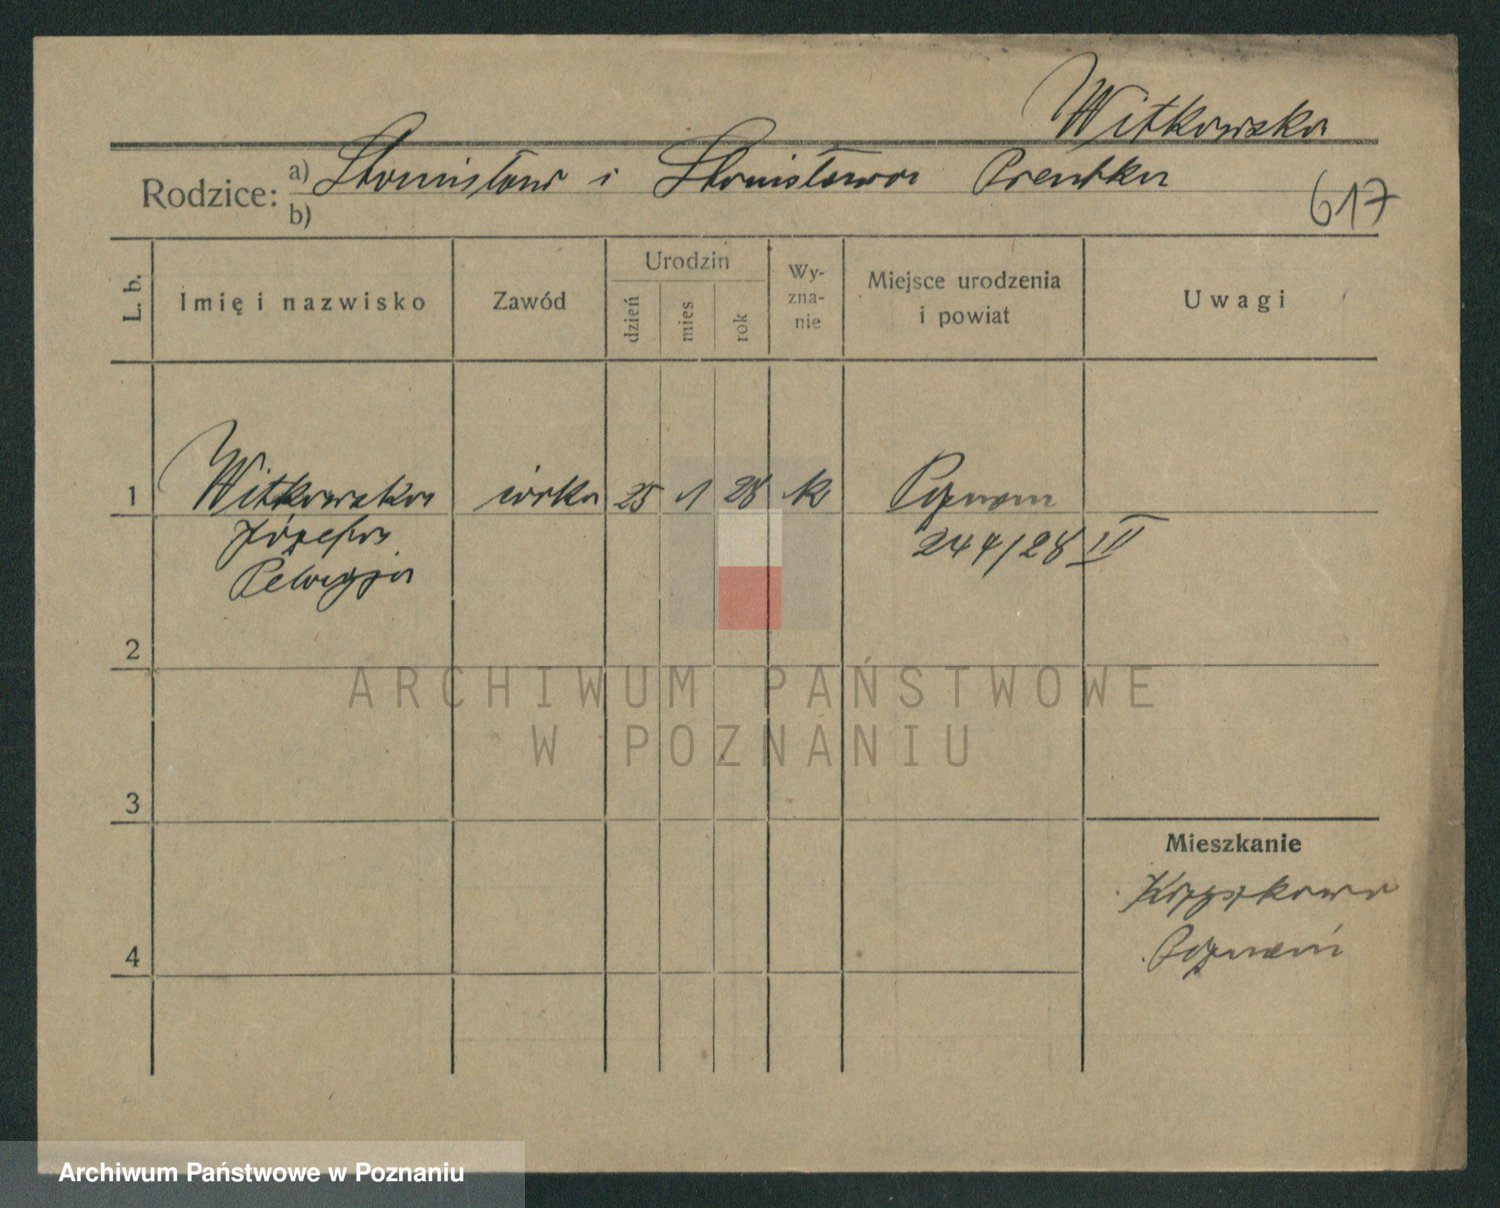 Witkowska
Rodzice: a) Stanisław i Stanisława Prentka
b)
617
L. b.
Imię i nazwisko
Zawód
Urodzin
dzień
mies
rok
Wy-
zna-
nie
Miejsce urodzenia
i powiat
Uwagi
1 Witkowska córka 25 1 28 rk Poznań
Józefa 244/28 III
Pelagja
2
3
4
Mieszkanie
Poznań
ARCHIWUM PAŃSTWOWE
W POZNANIU
Archiwum Państwowe w Poznaniu